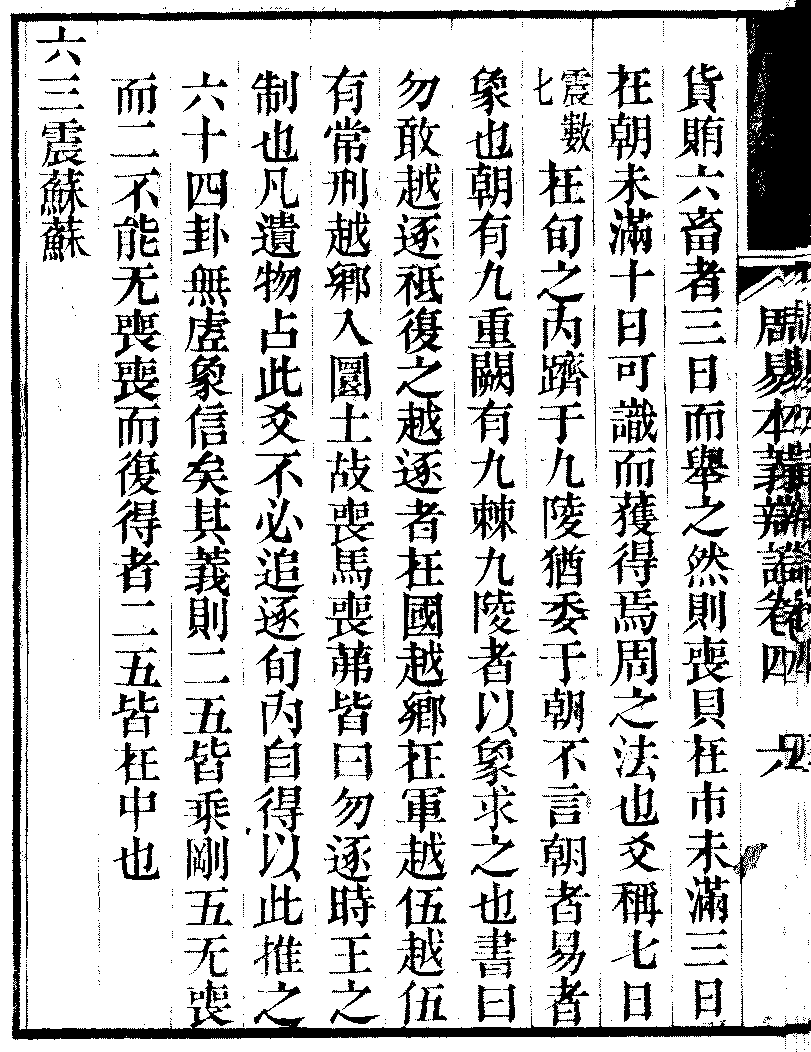 周易本義辯證卷四
貨賄六畜者三日而舉之然則喪貝在市未滿三日
在朝未滿十日可識而獲得焉周之法也爻稱七日
震數七在旬之內躋于九陵猶委于朝不言朝者易者
象也朝有九重闕有九棘九陵者以象求之也書曰
勿敢越逐祗復之越逐者在國越鄉在軍越伍越伍
有常刑越鄉入圜土故喪馬喪茀皆曰勿逐時王之
制也凡遺物占此爻不必追逐旬內自得以此推之
六十四卦無虛象信矣其義則二五皆乘剛五无喪
而二不能无喪喪而復得者二五皆在中也
六三震蘇蘇